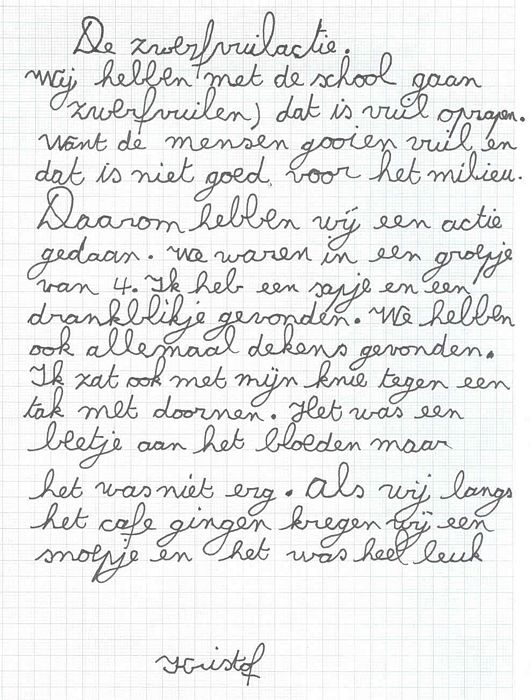 De zwerfvuilactie.
Wij hebben met de school gaan
zwerfvuilen) dat is vuil oprapen.
Want de mensen gooien vuil en
dat is niet goed voor het milieu.
Daarom hebben wij een actie
gedaan. We waren in een groepje
van 4. Ik heb een sapje en een
drankblikje gevonden. We hebben
ook allemaal dekens gevonden.
Ik zat ook met mijn knie tegen een
tak met doornen. Het was een
beetje aan het bloeden maar
het was niet erg. Als wij langs
het cafe gingen kregen wij een
snoepje en het was heel leuk
Kristof